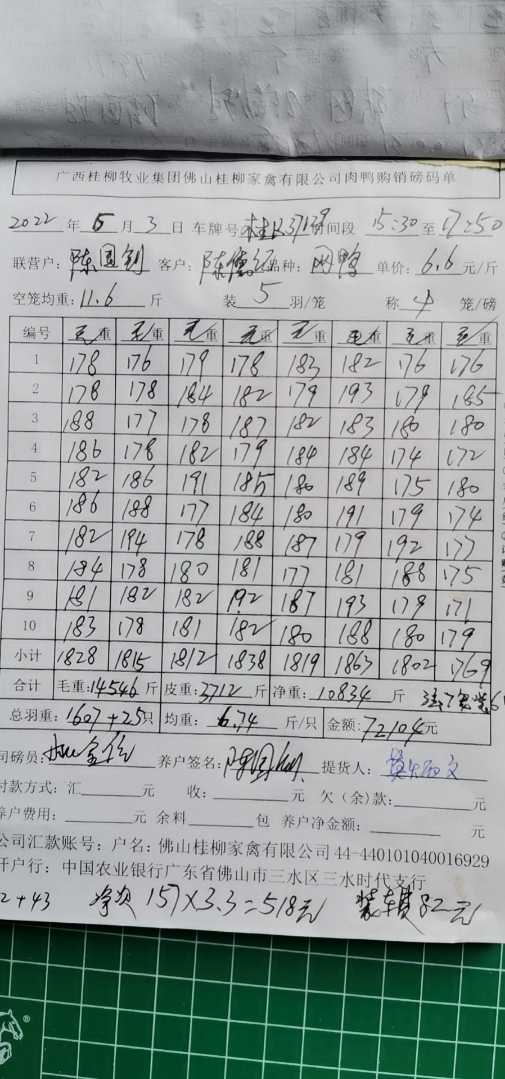 广西桂柳牧业集团佛山桂柳家禽有限公司肉鸭购销磅码单
2022 年 5 月 3 日 车牌号 时间段 15:30 至 17:50
联营户: 陈国钊 客户: 品种: 肉鸭 单价: 6.6 元/斤
空笼均重: 11.6 斤 装 5 羽/笼 称 4 笼/磅
编号 毛重 毛重 毛重 毛重 毛重 毛重 毛重 毛重
1 178 176 179 178 183 182 176 176
2 178 178 184 182 179 193 179 185
3 188 177 178 187 182 183 180 180
4 186 178 182 179 184 184 174 172
5 182 186 191 185 180 189 175 180
6 186 188 177 184 180 191 179 174
7 182 194 178 188 187 179 192 177
8 184 178 180 181 177 181 188 175
9 181 182 182 192 187 193 179 171
10 183 178 181 182 180 188 180 179
小计 1828 1815 1812 1838 1819 1863 1802 1769
合计 毛重: 14546 斤 皮重: 3712 斤 净重: 10834 斤
总羽重: 1607+25只 均重: 6.74 斤/只 金额: 72104元
司磅员: 养户签名: 陈国钊 提货人:
付款方式: 汇 元 收: 元 欠(余)款: 元
养户费用: 元 余料 包 养户净金额: 元
公司汇款账号: 户名: 佛山桂柳家禽有限公司 44-440101040016929
开户行: 中国农业银行广东省佛山市三水区三水时代支行
2+43 157×3.3=518元 装车费82元